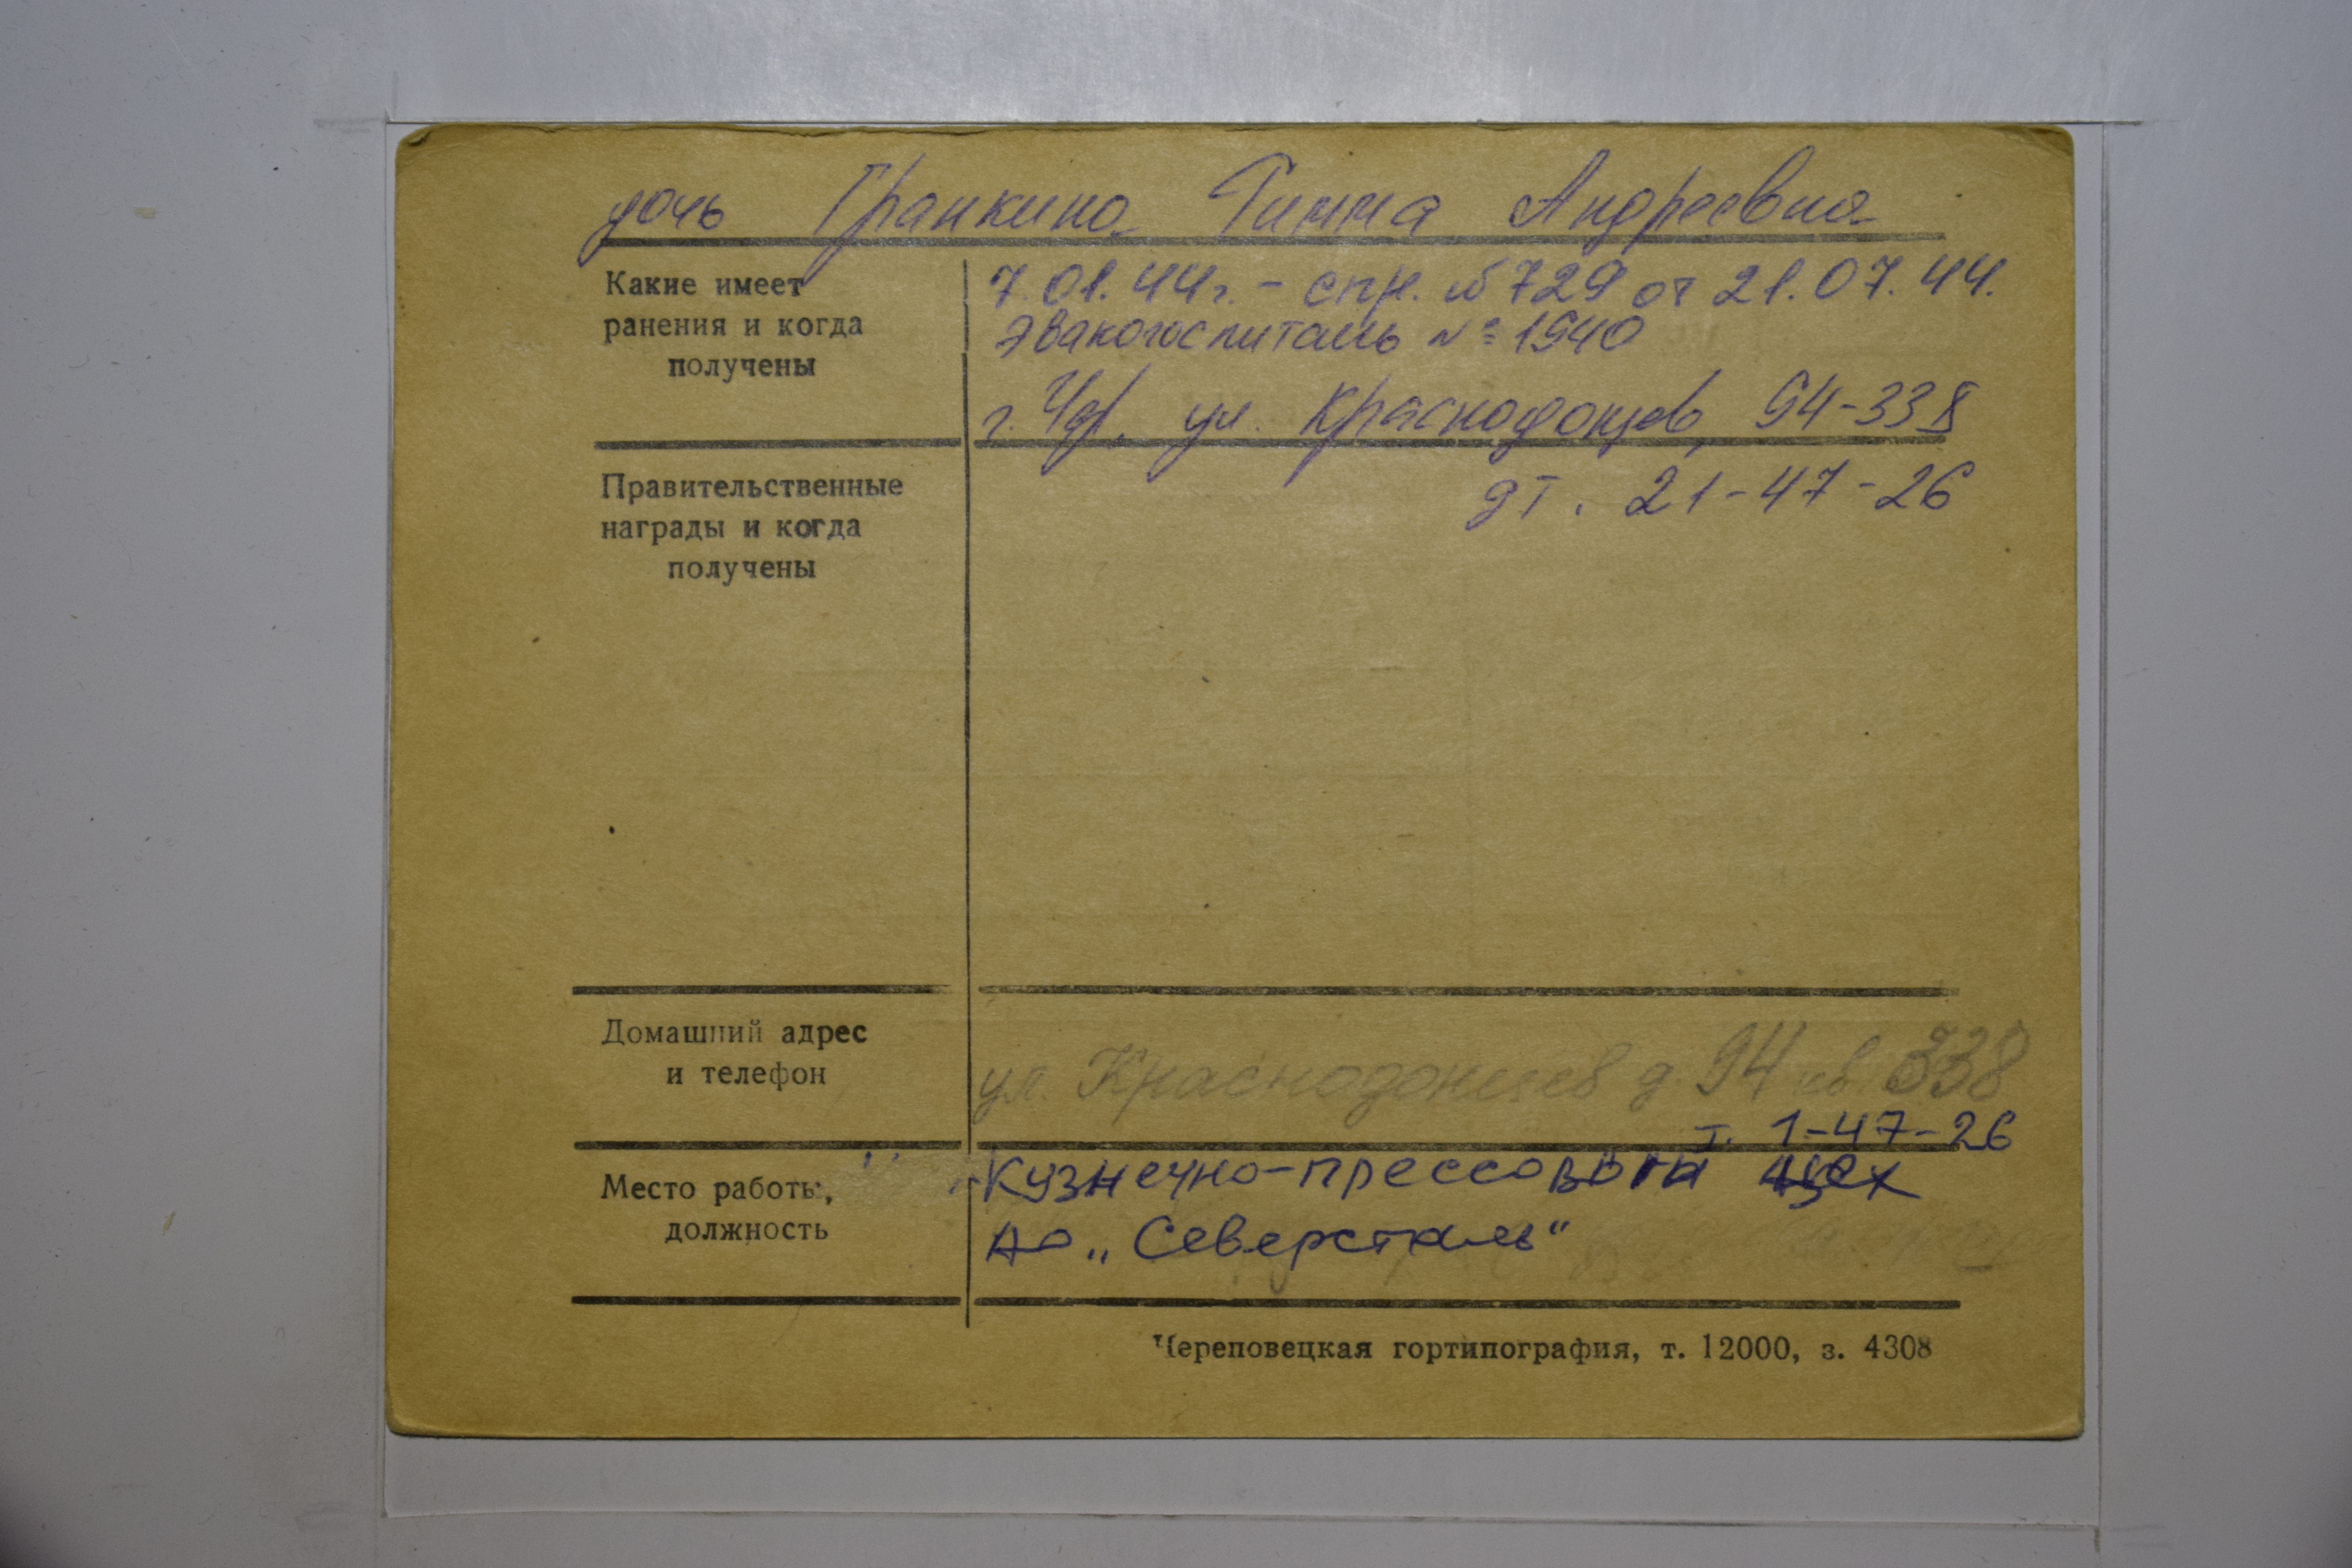 дочь Гранкина Римма Андреевна
Какие имеет
ранения и когда
получены
7.01.44г. - спр. №729 от 21.07.44.
Эвакогоспиталь №1940
г. Чер. ул. Краснодонцев, 94-338
дт. 21-47-26
Правительственные
награды и когда
получены
Домашний адрес
и телефон
ул. Краснодонцев д 94 кв 338
т. 1-47-26
Место работы,
должность
Кузнечно-прессовой цех
АО „Северсталь"
Череповецкая гортипография, т. 12000, з. 4308